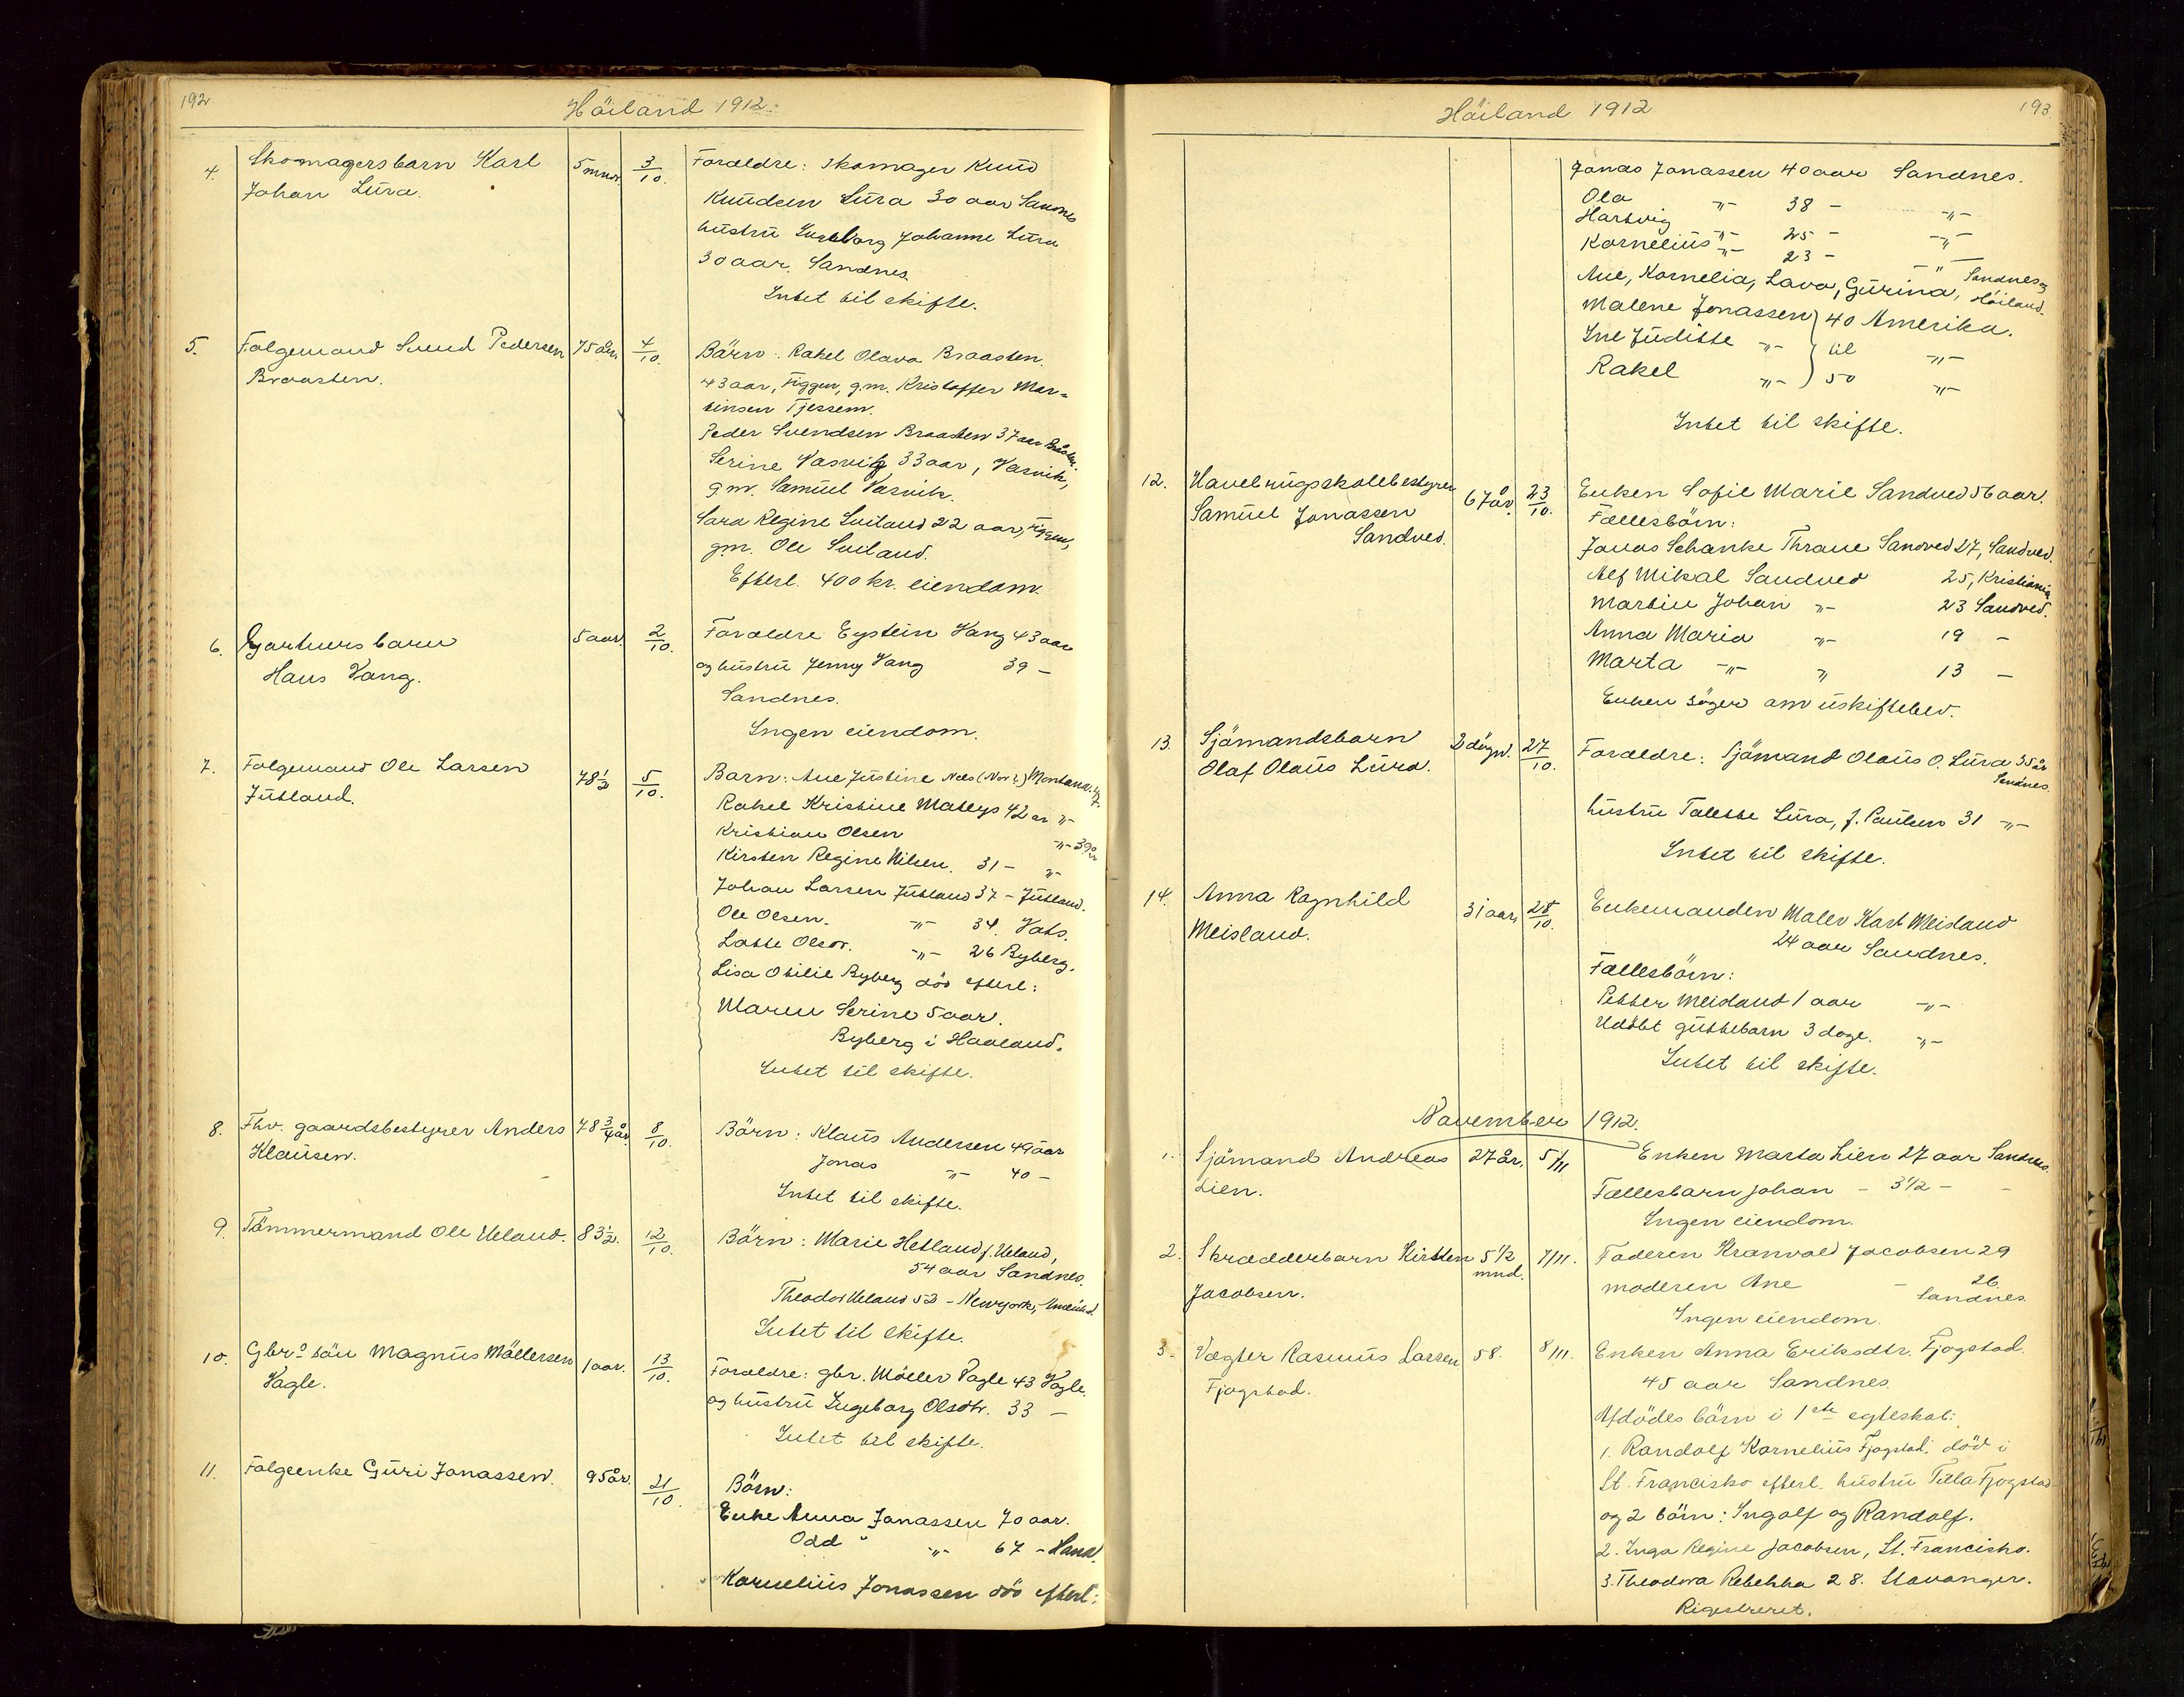 192
Höiland 1912.
4. Skomagersbarn Karl 5 mnd. 3/10. Foraldre: Skomager Knud
Johan Lura. Knudsen Lura 30 aar Sandnes
hustru Ingeborg Johanne Lura
30 aar. Sandnes.
Intet til skifte.
5. Folgemand Svend Pedersen 75 år 4/10. Börn: Rakel Olava Braasten.
Braasten. 43 aar, Figgen, g.m. Kristoffer Mar=
tinsen Tjessem.
Peder Svendsen Braasten 37 aar Braasten.
Serine Vasvik 33 aar, Vasvik,
g.m. Samuel Vasvik.
Sara Regine Suiland 22 aar, Figgen,
g.m. Ole Suiland.
Efterl. 400 kr. eiendom.
6. Gartnersbarn 5 aar. 2/10. Foraldre Eystein Vang 43 aar
Hans Vang. og hustru Jenny Vang 39 –
Sandnes.
Ingen eiendom.
7. Folgemand Ole Larsen 78½ 5/10. Barn: Ane Justine Nees (Nor?) Montana. 47
Jutland. Rakel Kristine Matlys 42 ar -"-
Kristian Olsen -"- 39 år
Kirsten Regine Nilsen. 31 – -"-
Johan Larsen Jutland 37 – Jutland.
Ole Olsen. -"- 34. Vats.
Latte Olsdr. -"- 26 Byberg.
Lisa Otilie Byberg död efterl:
Maren Serine 5 aar.
Byberg i Haaland.
Intet til skifte.
8. Fhv. gaardsbestyrer Anders 78¾ år. 8/10. Börn: Klaus Andersen 49 aar
Klausen. Jonas -"- 40 –
Intet til skifte.
9. Tömmermand Ole Ueland. 83½. 12/10. Börn: Marie Hetland f. Ueland,
54 aar Sandnes.
Theodor Ueland 52 – Newyork,
Intet til skifte.
10. Gbr. sön Magnus Möllersen 1 aar. 13/10. Foraldre: gbr. Möller Vagle 43 Vagle.
Vagle. og hustru Ingeborg Olsdtr. 33 –
Intet til skifte.
11. Folgeenke Guri Jonassen. 95 år. 21/10. Börn:
Enke Anna Jonassen 70 aar.
Odd " -"- 67 – Sand.
Kornelius Jonassen död efterl:
193.
Höiland 1912
Jonas Jonassen 40 aar Sandnes.
Ola -"- 38 – -"-
Hartvig -"- 25 – -"-
Kornelius -"- 23 – -"-
Ane, Kornelia, Lava, Gurina, Sandnes og Höiland.
Malene Jonassen } 40 Amerika.
Ine Juditte -"- } til -"-
Rakel -"- } 50 -"-
Intet til skifte.
12. Havebrugsskolebestyrer 67 år. 23/10. Enken Sofie Marie Sandved 56 aar.
Samuel Jonassen Fællesbörn:
Sandved. Jonas Schanke Thrane Sandved 27, Sandved.
Alf Mikal Sandved 25, Kristiania
Martin Johan -"- 23 Sandved.
Anna Maria -"- 19 –
Marta -"- " 13 –
Enken söger om uskiftebev.
13. Sjömandsbarn 2 dögn. 27/10. Foraldre: Sjömand Olaus O. Lura 35 år
Olaf Olaus Lura. Sandnes.
hustru Talette Lura, f. Paulsen 31 -"-
Intet til skifte.
14. Anna Ragnhild 31 aar 28/10. Enkemanden Maler Karl Meisland
Meisland. 24 aar Sandnes.
Fællesbörn:
Petter Meisland 1 aar -"-
Udöbt guttebarn 3 dage. -"-
Intet til skifte.
November 1912.
1. Sjömand Andreas 27 år. 5/11 Enken Marta Lien 27 aar Sandnes.
Lien. Fællesbarn Johan – 3½ – –
Ingen eiendom.
2. Skrædderbarn Kirsten 5½ mnd. 7/11. Faderen Kranvald Jacobsen 29
Jacobsen. moderen Ane – 26
Sandnes.
Ingen eiendom.
3. Vægter Rasmus Larsen 58. 8/11. Enken Anna Eriksdtr. Fjogstad.
Fjogstad. 45 aar Sandnes.
Afdödes börn i 1ste egteskab:
1. Randolf Kornelius Fjogstad. död i
St. Francisko efterl. hustru Tilla Fjogstad
og 2 börn: Ingolf og Randolf.
2. Inga Regine Jacobsen, St. Francisko.
3. Theodora Rebekka 28. Stavanger.
Rigestreret.